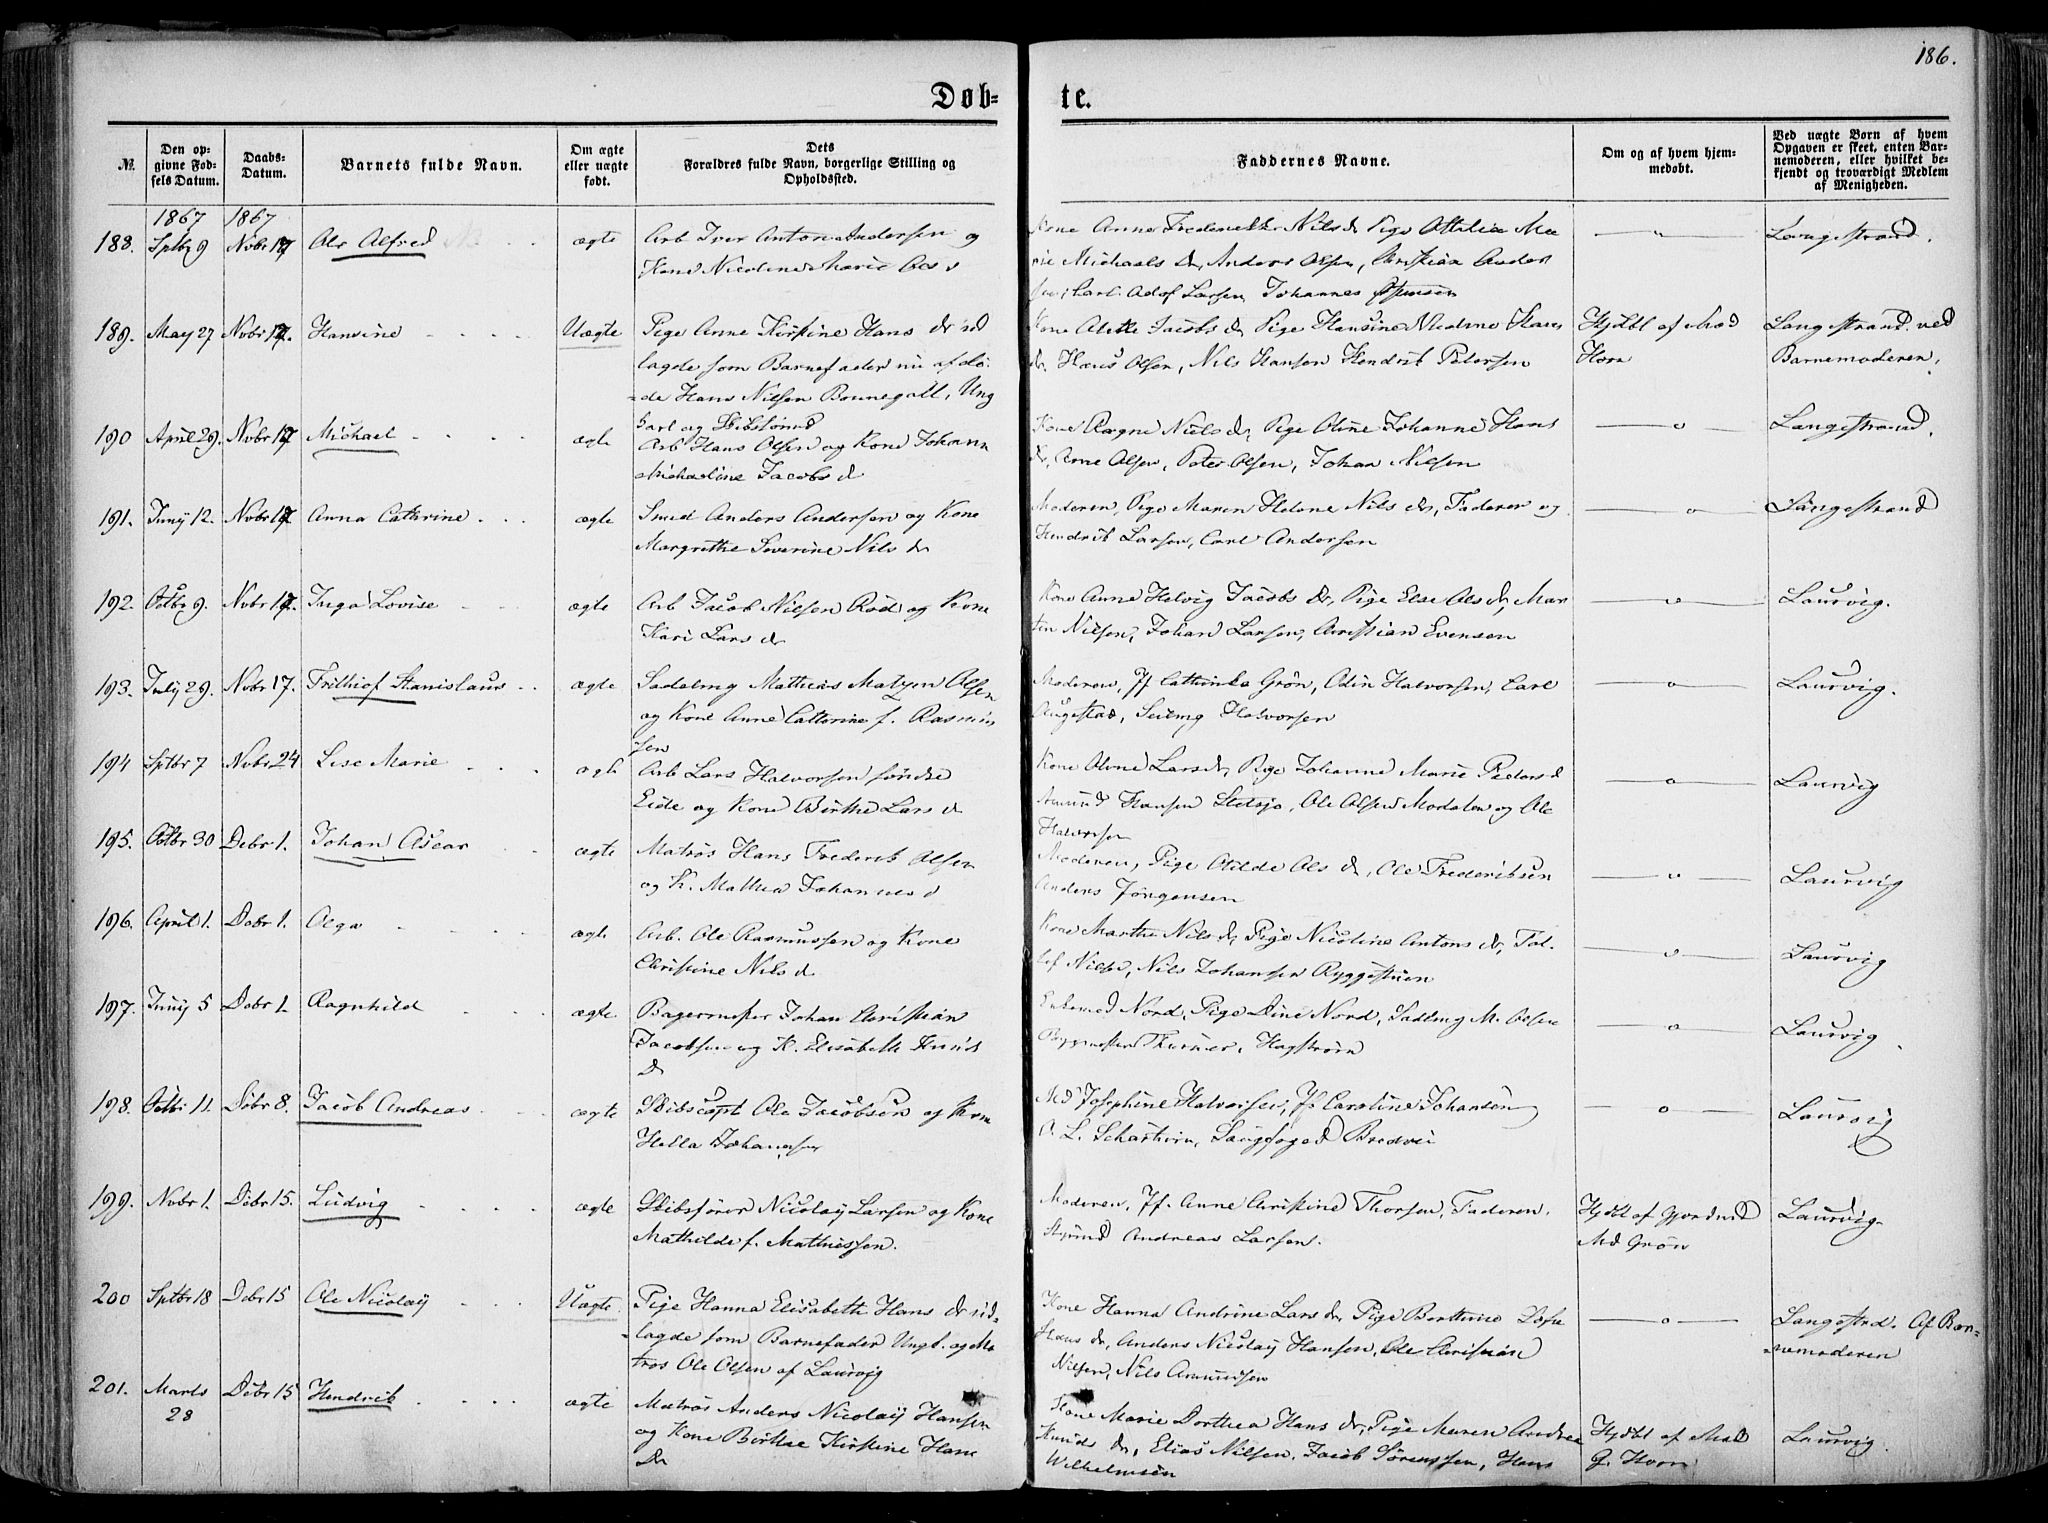 186.
Døb-
te.
№
Den op-
givne Fød-
sels Datum.
Daabs-
Datum.
Barnets fulde Navn.
Om ægte
eller uægte
født.
Dets
Forældres fulde Navn, borgerlige Stilling og
Opholdssted.
Faddernes Navne.
Om og af hvem hjem-
medøbt.
Ved uægte Børn af hvem
Opgaven er skeet, enten Bar-
nemoderen, eller hvilket be-
kjendt og troværdigt Medlem
af Menigheden.
1867 1867
188. Sptbr 9 Novbr 17 Ole Alfred ægte Arb Iver Anton Andersen og
Kone Nicoline Marie Ols d
Kone Anne Nils d, Pige Ottilia Ma
rie Michaels d, Anders Olsen, Christian Ander
sen, Carl Adof Larsen, Johannes
Langestrand.
189. May 27 Novbr 17. Hansine Uægte Pige Anne Kirstine Hans dr ud
lagde som Barnefader nu afdø-
de Hans Nilsen Bonnegoll, Ung
karl og
Kone Alette Jacobs d, Pige Hansine Hans
d. Hans Olsen, Nils Hansen Hendrik Petersen
Hjdbt af Mad
Horn
Langestrand ved
Barnemoderen,
190 April 29. Novbr 17 Michael ægte Arb Hans Olsen og Kone Johann
Michaline Jacobs d
Kone Ragne Niels d, Pige Oline Johanne Hans
d, Arne Olsen, Peter Olsen, Johan Nilsen
Langestrand.
191. Juny 12. Novbr 17 Anna Cathrine ægte Smed Anders Andersen og Kone
Margrethe Severine Nils d
Moderen, Pige Maren Helene Nils d, Faderen og
Hendrik Larsen, Carl Andersen
Langestrand
192. Octbr 9. Novbr 17. Inga Lovise ægte Arb Jacob Nilsen Rød og Kone
Kari Lars d
Kone Anne Helvig Jacobs d, Pige Else Ols d, Mar
tin Nilsen, Johan Larsen, Christian Evensen
Laurvig.
193. July 29. Novbr 17. Frithiof Stanislaus ægte Sadelmg Mathias Matzen Olsen
og Kone Anne Cathrine f. Rasmus
sen
Moderen, Jf Cathinka Grøn, Odin Halvorsen, Carl
Augestad, Halvorsen
Laurvig.
194 Sptbr 7 Novbr 24 Lise Marie ægte Arb Lars Halvorsen søndre
Eide og Kone Birthe Lars d
Kone Oline Lars d, Pige Johanne Marie Peders d
Amund Hansen, Ole Olsen og Ole
Halvorsen
Laurvig
195. Octbr 30 Debr 1. Johan Oscar ægte Matros Hans Frederik Olsen
og K. Mathea Johannes d
Moderen, Pige Otilde Ols d, Ole Frederiksen
Anders Jørgensen
Laurvig
196. April 1. Debr 1. Olga ægte Arb. Ole Rasmussen og Kone
Christine Nils d
Kone Marthe Nils d, Pige Nicoline Antons d, Tol-
lef Nilsen, Nils Johansen Ryggestuen
Laurvig
197. Juny 5 Debr 1. Ragnhild ægte Bagermester Johan Christian
Jacobsen og K. Elisabeth Knuds
d
Enkemad Nord, Pige Line Nord, Sadlmg M. Olsen
Bygmester Thurmer, Hagstrøm
Laurvig.
198. Octbr 11. Debr 8. Jacob Andreas ægte Skibscapt Ole Jacobsen og Kone
Hella Johannsen
Md Josephine Halvorsen, Jf Caroline Johansen
O. L. Scharthum, Sangfoged Bredvei
Laurvig
199. Novbr 1. Debr 15. Ludvig ægte Skibsfører Nicolay Larsen og Kone
Mathilde f. Mathiessen.
Moderen, Jf. Anne Christine Thorsen, Faderen,
Styrmd Andreas Larsen.
Hjdbt af Jordmd
Md Grøn
Laurvig.
200 Sptbr 18 Debr 15 Ole Nicolay Uægte. Pige Hanna Elisabeth Hans dr ud-
-lagde som Barnefader Ungk. og Ma
tros Ole Olsen af Laurvig
Kone Hanna Andrine Lars d, Pige Berthine
Hans d, Anders Nicolay Hansen, Ole Christian
Nilsen, Nils Amundsen
Langestrd. Af Bar-
-nemoderen
201. Marts 28 Debr 15 Hendrik ægte Matros Anders Nicolay Hansen
og Kone Birthe Kirstine Hans
d
Kone Marie Dorthea Hans d, Pige Maren Andrea
Knuds d, Elias Nilsen, Jacob Sørenssen, Hans
Wilhelmsen
Hjdbt af Mad
G. Horn
Laurvig.